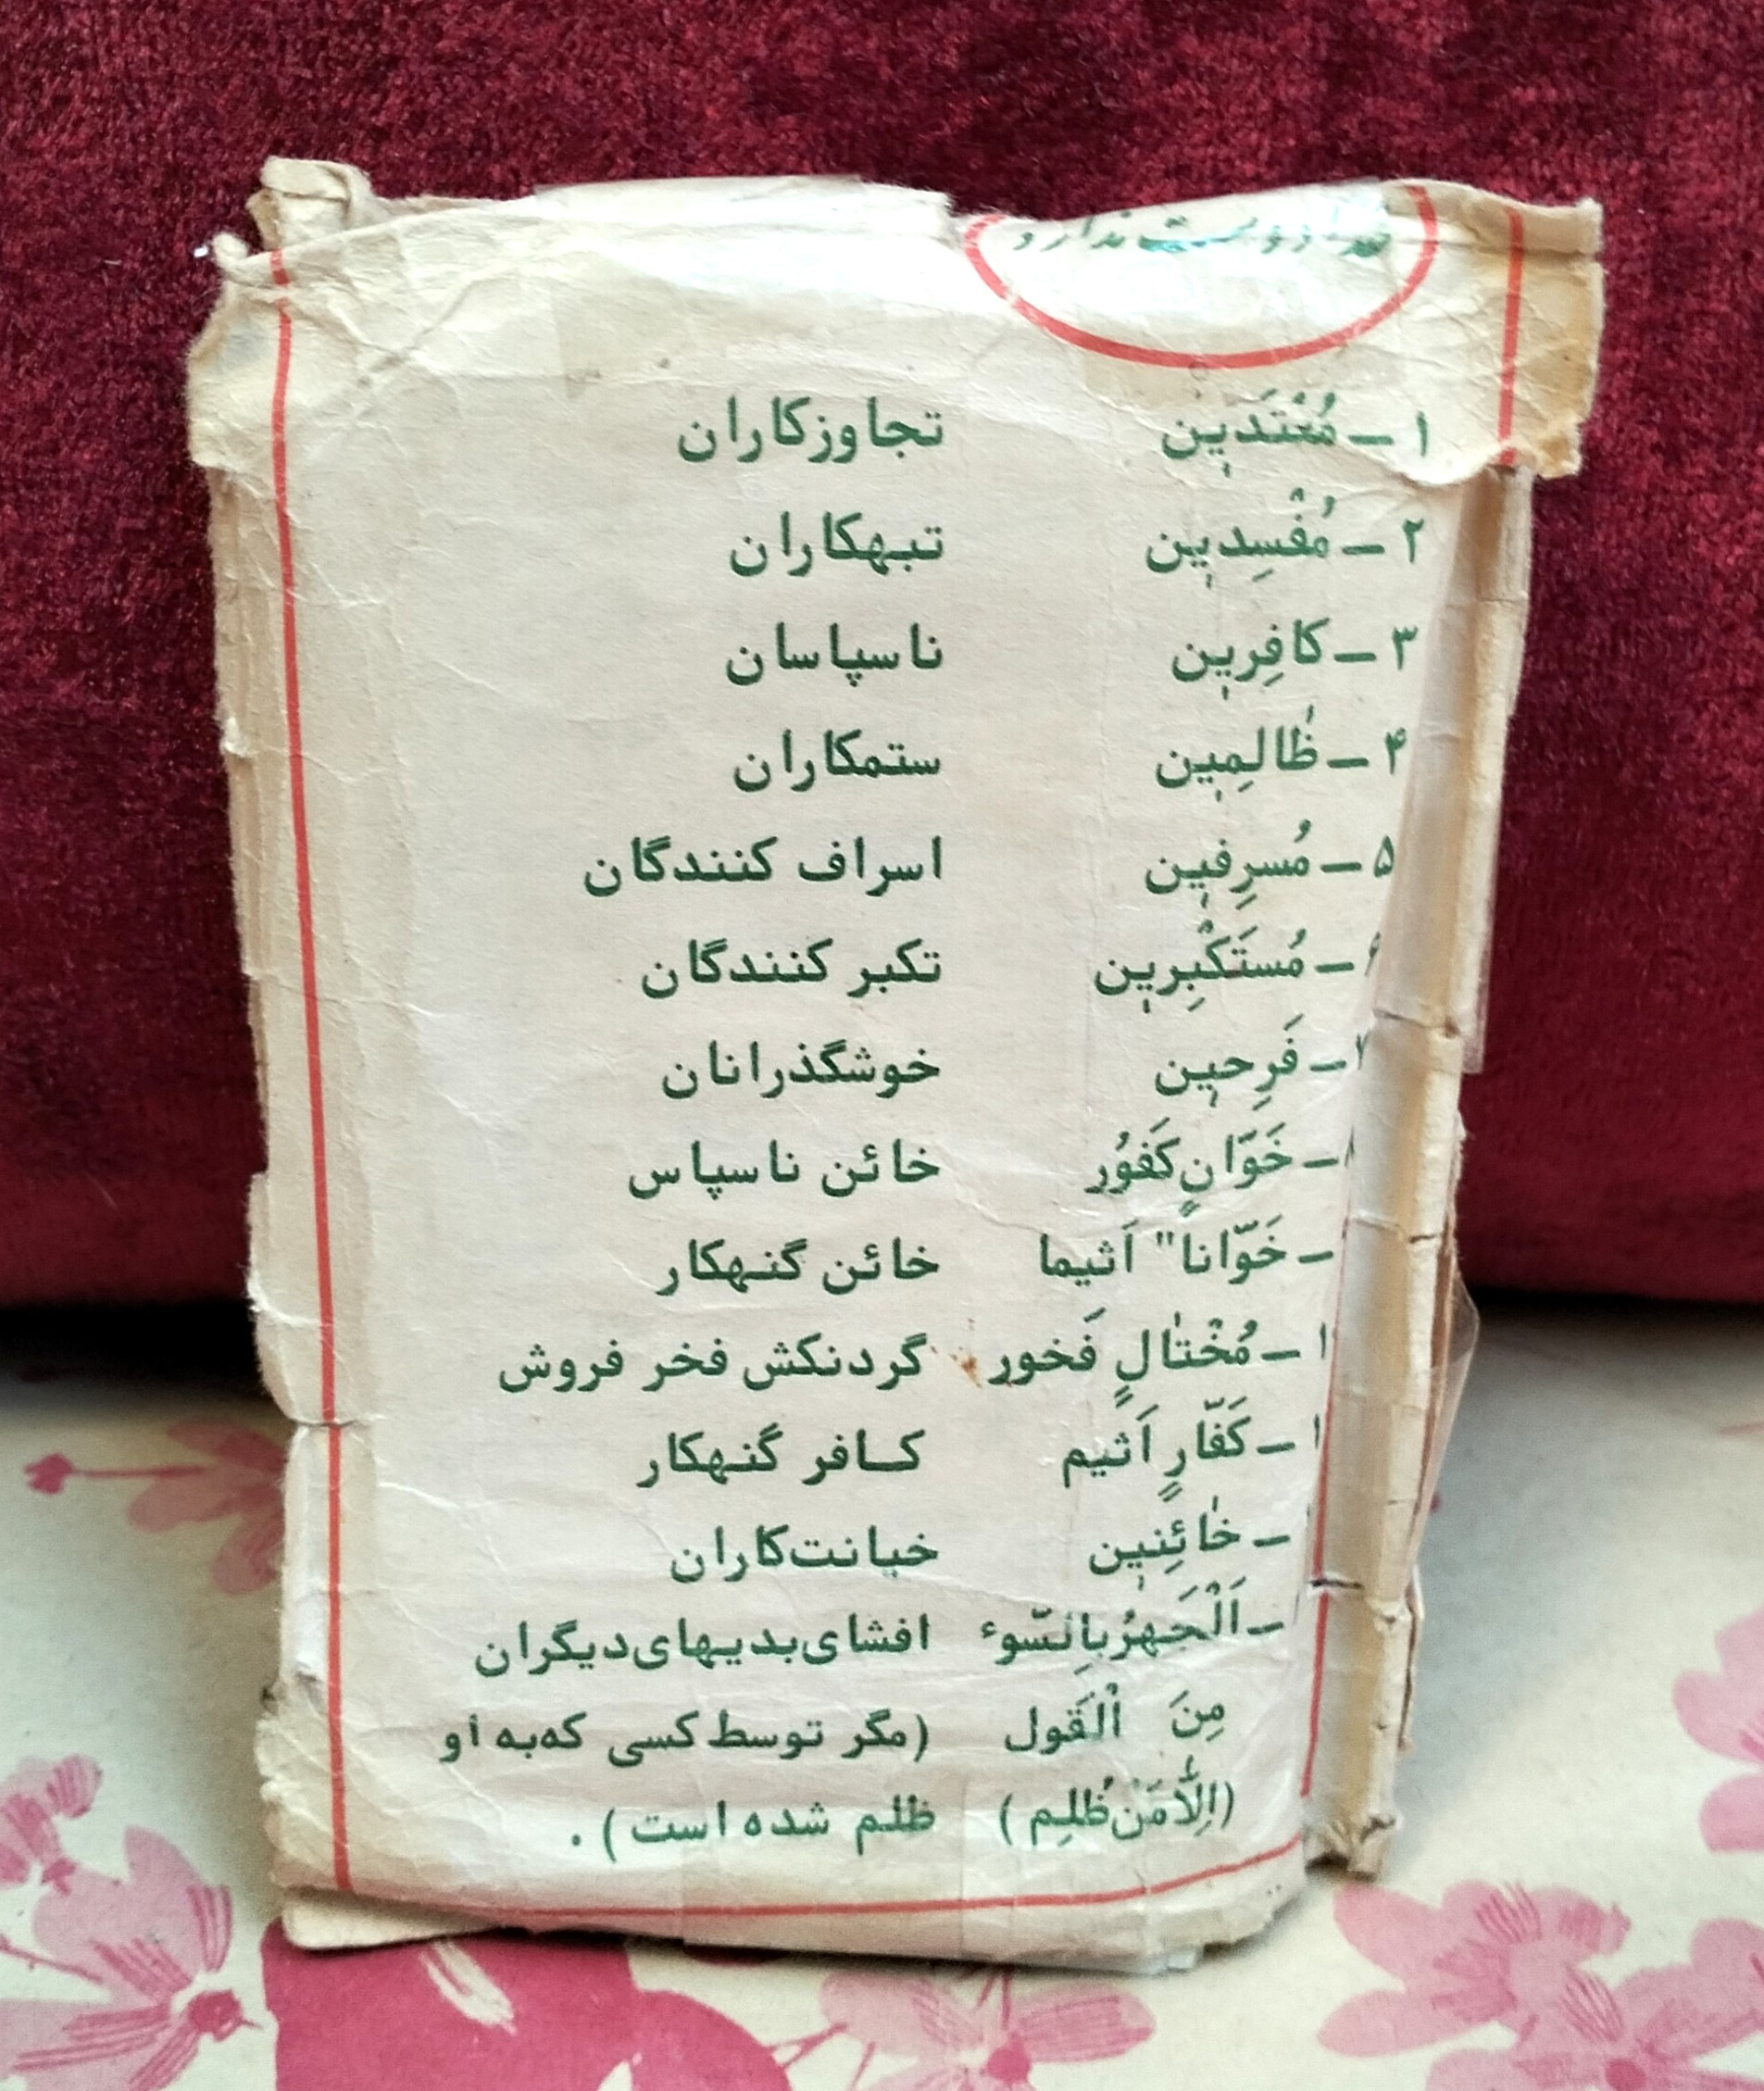 خدا دوست ندارد
۱ – مُعْتَدین تجاوزکاران
۲ – مُفْسِدین تبهکاران
۳ – کافِرین ناسپاسان
۴ – ظٰالِمین ستمکاران
۵ – مُسرِفین اسراف کنندگان
– مُستَکْبِرین تکبر کنندگان
۷ – فَرِحین خوشگذرانان
– خَوّانٍ کَفُور خائن ناسپاس
– خَوّانا" اَثیما خائن گنهکار
۱ – مُخْتٰالٍ فَخور گردنکش فخر فروش
۱ – کَفّارٍ اَثیم کافر گنهکار
– خٰائِنین خیانت‌کاران
– اَلْجَهرُ بِالسّوء افشای بدیهای دیگران
مِنَ اْلقَول (مگر توسط کسی که به او
(اِلّٰا مَنْ ظُلِم) ظلم شده است).